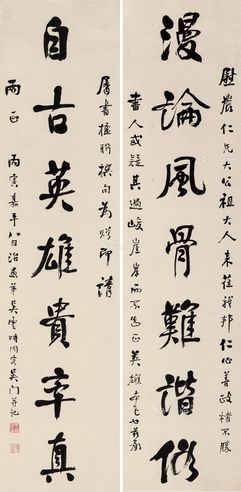 慰農仁兄大公祖大人來莅我邦仁心善政指不勝
漫論風骨難諧俗
書人或疑其過峻崖岸而不知正英雄本色也兹承
屬書楹聯撰句為贈即請
自古英雄貴率真
兩正 丙寅嘉平八日治愚弟吳雲時同客吳門并記